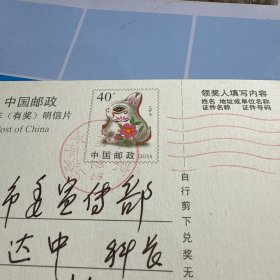 中国邮政
(有奖)明信片
Post of China
40分
中国邮政 CHINA
领奖人填写内容
姓名 地址或单位名称
证件名称 证件号码
自行剪下兑奖无
市委宣传部
达中 科长